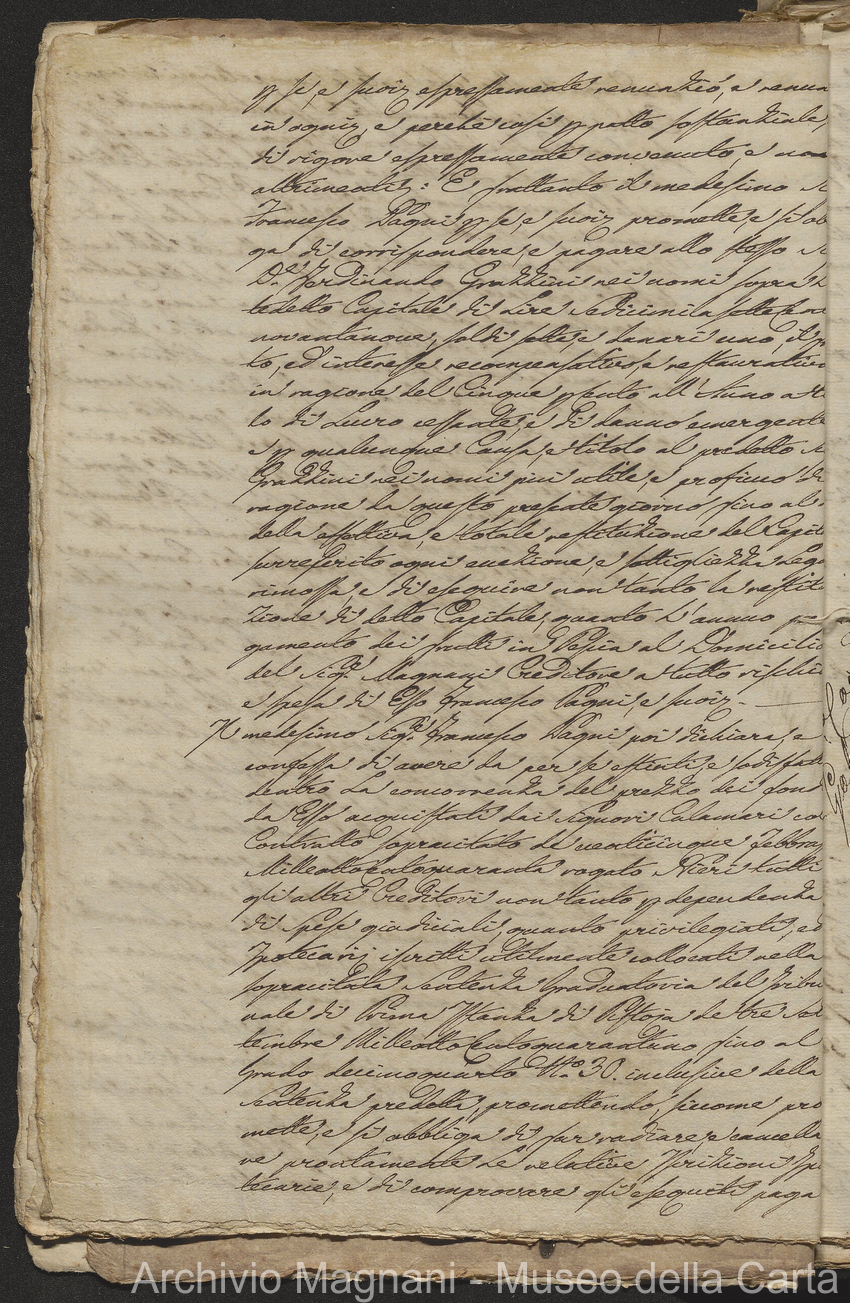 p se, e suoi espressamente renunziò, e renun
in ogni, e perché così p patto sostanziale,
di rigore espressamente convenuto, e non
altrimenti: E frattanto il medesimo
Francesco Pagni p se, e suoi promette, e si ob
ga di corrispondere, e pagare allo stesso
De. Ferdinando Grazzini nei nomi sopra
detto Capitale di Lire Sedicimila sette
novantanove, soldi sette, e danari uno, il
to, ed interesse recompensativo, e restaurativo
in ragione del Cinque p cento all'Anno a
lo di Lucro cessante, e di danno emergente
e p qualunque Causa, e titolo al predetto
Grazzini nei nomi più utile, e proficuo di
ragione da questo presente giorno fino al
della effettiva, e totale restituzione del Capit
surreferito ogni eccezione, e sottigliezza Lega
rimossa, e di eseguire non tanto la restitu
zione di detto Capitale, quanto l'annuo pa
gamento dei frutti in Pescia al Domicilio
del Sigr. Magnani Creditore a tutto rischio
e spesa di Esso Francesco Pagni, e suoi.
Il medesimo Sigr. Francesco Pagni poi dichiara, e
confessa di avere da per se estinti, e sodisfatti
dentro La concorrenza del prezzo dei fondi
da Esso acquistati dai Signori Calamari col
Contratto sopracitato de venticinque Febbraj
Milleottocentoquaranta rogato Nieri tutti
gli altri Creditori non tanto p dependenza
di Spese giudiciali, quanto privilegiati, ed
Ipotecarij iscritti utilmente collocati nella
sopracitata Sentenza Graduatoria del Tribu
nale di Prima Istanza di Pistoja de tre Set
tembre Milleottocentoquarantuno fino al
Grado decimoquarto No. 30. inclusive della
Sentenza predetta, promettendo, siccome pro
mette, e si obbliga di far radiare, e cancella
re prontamente Le relative Iscrizioni Ipo
tecarie, e di comprovare gli eseguiti paga
Archivio Magnani - Museo della Carta